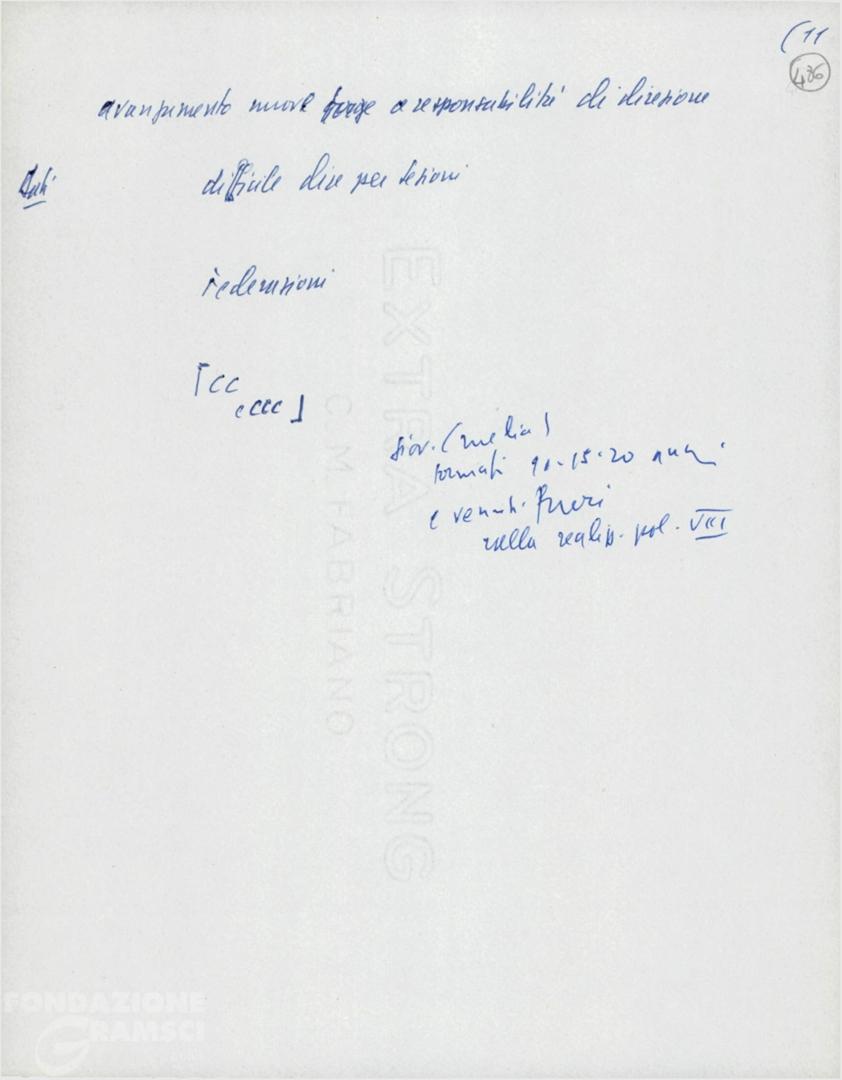 (11
486
avanzamento nuove forze a responsabilità di direzione
Dati
difficile dire per sezioni
Federazioni
[CC
e CCC]
giov. (media)
formati 10-15-20 anni
e venuti fuori
nella realizz. pol. VIII
EXTRA STRONG
C.M. FABRIANO
FONDAZIONE
GRAMSCI